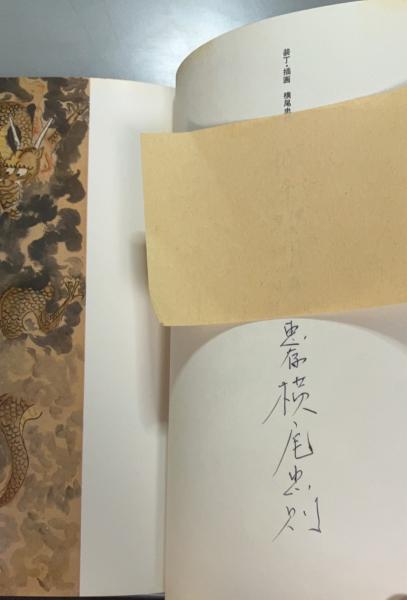 装丁・插画 横尾忠
惠存
横尾忠則